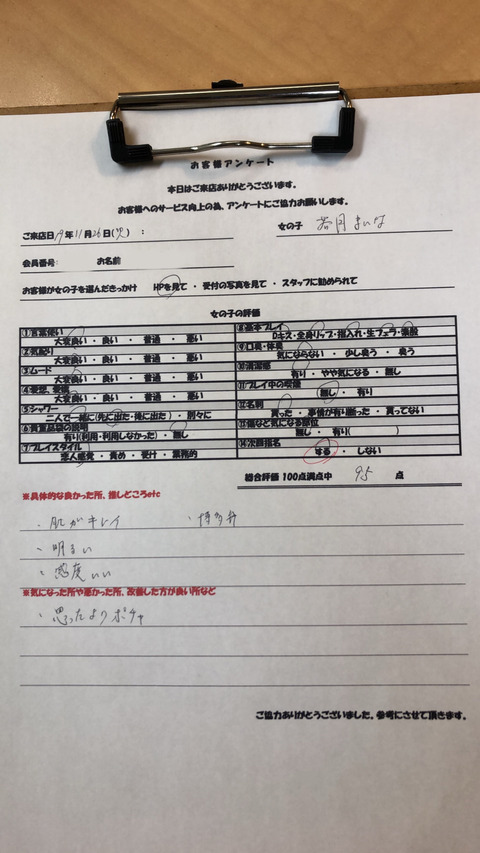 お客様アンケート
本日はご来店ありがとうございます。
お客様へのサービス向上の為、アンケートにご協力お願いします。
ご来店日 19年 11月 26日(火) :
女の子 若月まいな
会員番号: お名前
お客様が女の子を選んだきっかけ HPを見て ・ 受付の写真を見て ・ スタッフに勧められて
女の子の評価
①言葉使い
大変良い ・ 良い ・ 普通 ・ 悪い
②気配り
大変良い ・ 良い ・ 普通 ・ 悪い
③ムード
大変良い ・ 良い ・ 普通 ・ 悪い
④愛想、笑顔
大変良い ・ 良い ・ 普通 ・ 悪い
⑤シャワー
二人で一緒に(先に出た・後に出た) ・ 別々に
⑥貴重品袋の説明
有り(利用・利用しなかった) ・ 無し
⑦プレイスタイル
恋人感覚 ・ 責め ・ 受け ・ 業務的
⑧基本プレイ
Dキス・全身リップ・指入れ・生フェラ・素股
⑨口臭・体臭
気にならない ・ 少し臭う ・ 臭う
⑩清潔感
有り ・ やや気になる ・ 無し
⑪プレイ中の喫煙
無し ・ 有り
⑫名刺
貰った ・ 事情が有り断った ・ 貰ってない
⑬傷など気になる部位
無し ・ 有り( )
⑭次回指名
する ・ しない
総合評価 100点満点中 95 点
※具体的な良かった所、推しどころetc
・肌がキレイ ・博多弁
・明るい
・感度いい
※気になった所や悪かった所、改善した方が良い所など
・思ったよりポチャ
ご協力ありがとうございました。参考にさせて頂きます。